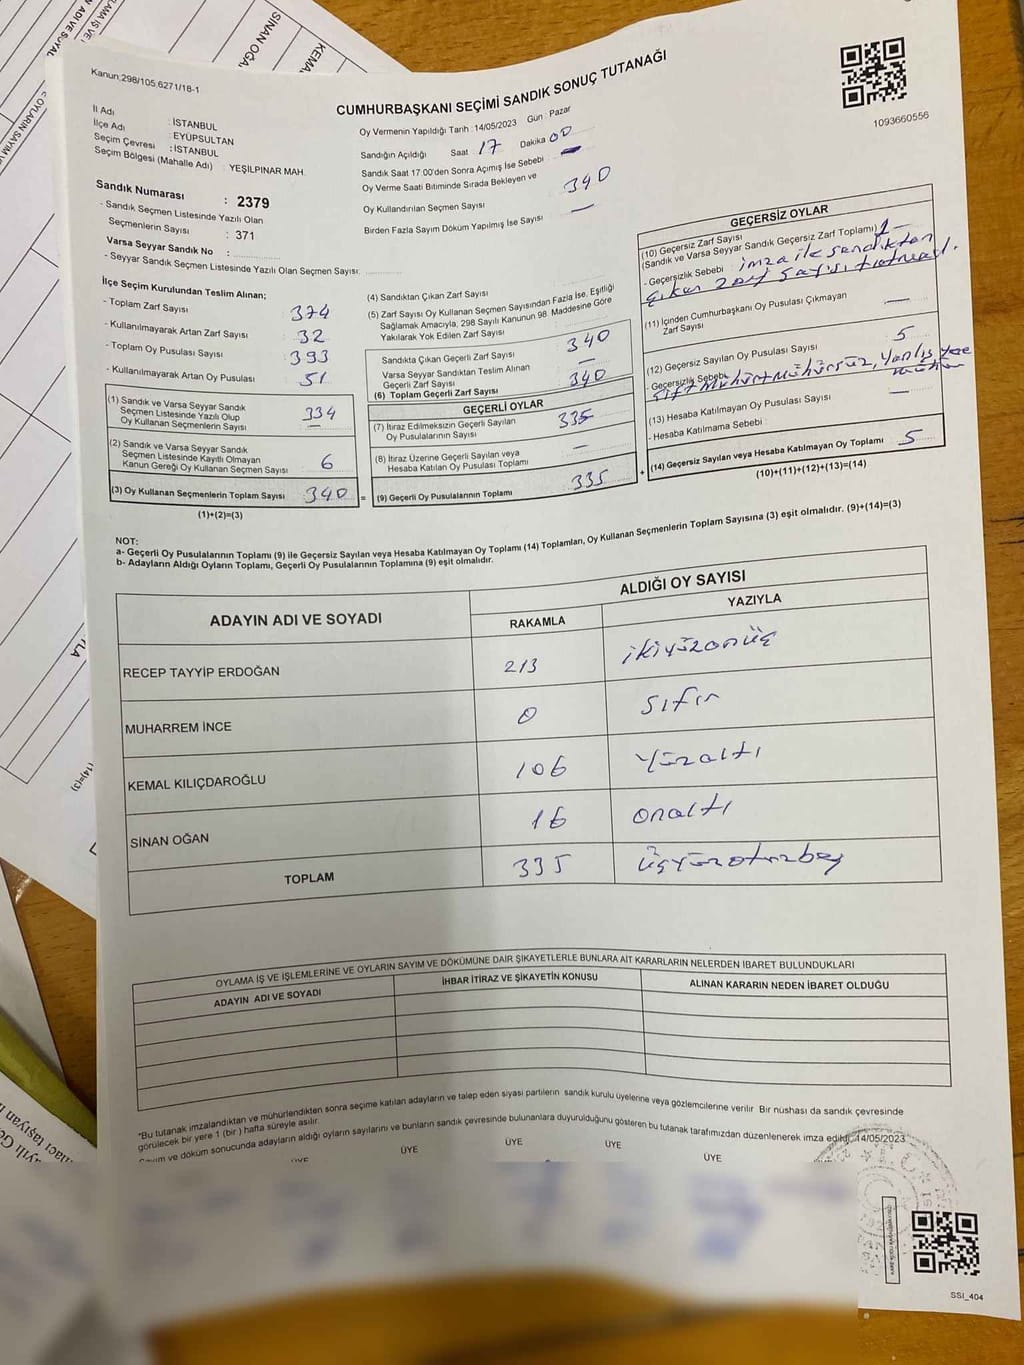 LAMA İŞ VE İ
N ADI VE SOYAD
SİNAN OĞA
KEMA
E OYLARIN SAYIM V
Kanun:298/105.6271/18-1
CUMHURBAŞKANI SEÇİMİ SANDIK SONUÇ TUTANAĞI
1093660556
İl Adı : İSTANBUL
İlçe Adı : EYÜPSULTAN
Seçim Çevresi : İSTANBUL
Seçim Bölgesi (Mahalle Adı) : YEŞİLPINAR MAH.
Oy Vermenin Yapıldığı Tarih : 14/05/2023 Gün : Pazar
Sandığın Açıldığı Saat 17 Dakika 00
Sandık Saat 17.00'den Sonra Açımış İse Sebebi —
Oy Verme Saati Bitiminde Sırada Bekleyen ve
Oy Kullandırılan Seçmen Sayısı 340
Birden Fazla Sayım Döküm Yapılmış İse Sayısı —
Sandık Numarası : 2379
- Sandık Seçmen Listesinde Yazılı Olan
Seçmenlerin Sayısı : 371
Varsa Seyyar Sandık No :
- Seyyar Sandık Seçmen Listesinde Yazılı Olan Seçmen Sayısı:
İlçe Seçim Kurulundan Teslim Alınan;
- Toplam Zarf Sayısı 374
- Kullanılmayarak Artan Zarf Sayısı 32
- Toplam Oy Pusulası Sayısı 393
- Kullanılmayarak Artan Oy Pusulası 51
(1) Sandık ve Varsa Seyyar Sandık
Seçmen Listesinde Yazılı Olup
Oy Kullanan Seçmenlerin Sayısı 334
(2) Sandık ve Varsa Seyyar Sandık
Seçmen Listesinde Kayıtlı Olmayan
Kanun Gereği Oy Kullanan Seçmen Sayısı 6
(3) Oy Kullanan Seçmenlerin Toplam Sayısı 340 =
(1)+(2)=(3)
(4) Sandıktan Çıkan Zarf Sayısı
(5) Zarf Sayısı Oy Kullanan Seçmen Sayısından Fazla İse, Eşitliği
Sağlamak Amacıyla, 298 Sayılı Kanunun 98. Maddesine Göre
Yakılarak Yok Edilen Zarf Sayısı
Sandıkta Çıkan Geçerli Zarf Sayısı 340
Varsa Seyyar Sandıktan Teslim Alınan
Geçerli Zarf Sayısı —
(6) Toplam Geçerli Zarf Sayısı 340
GEÇERLİ OYLAR
(7) İtiraz Edilmeksizin Geçerli Sayılan
Oy Pusulalarının Sayısı 335
(8) İtiraz Üzerine Geçerli Sayılan veya
Hesaba Katılan Oy Pusulası Toplamı —
(9) Geçerli Oy Pusulalarının Toplamı 335 +
GEÇERSİZ OYLAR
(10) Geçersiz Zarf Sayısı
(Sandık ve Varsa Seyyar Sandık Geçersiz Zarf Toplamı) —
- Geçersizlik Sebebi : imza ile sandıktan
çıkan zarf sayısı tutmadı.
(11) İçinden Cumhurbaşkanı Oy Pusulası Çıkmayan
Zarf Sayısı —
(12) Geçersiz Sayılan Oy Pusulası Sayısı 5
- Geçersizlik Sebebi : Çift Mühür, Mühürsüz, Yanlış yere
mühür
(13) Hesaba Katılmayan Oy Pusulası Sayısı —
- Hesaba Katılmama Sebebi :
(14) Geçersiz Sayılan veya Hesaba Katılmayan Oy Toplamı 5
(10)+(11)+(12)+(13)=(14)
NOT:
a- Geçerli Oy Pusulalarının Toplamı (9) ile Geçersiz Sayılan veya Hesaba Katılmayan Oy Toplamı (14) Toplamları, Oy Kullanan Seçmenlerin Toplam Sayısına (3) eşit olmalıdır. (9)+(14)=(3)
b- Adayların Aldığı Oyların Toplamı, Geçerli Oy Pusulalarının Toplamına (9) eşit olmalıdır.
ADAYIN ADI VE SOYADI
ALDIĞI OY SAYISI
RAKAMLA YAZIYLA
RECEP TAYYİP ERDOĞAN 213 ikiyüzonüç
MUHARREM İNCE 0 sıfır
KEMAL KILIÇDAROĞLU 106 Yüzaltı
SİNAN OĞAN 16 onaltı
TOPLAM 335 üçyüzotuzbeş
OYLAMA İŞ VE İŞLEMLERİNE VE OYLARIN SAYIM VE DÖKÜMÜNE DAİR ŞİKAYETLERLE BUNLARA AİT KARARLARIN NELERDEN İBARET BULUNDUKLARI
ADAYIN ADI VE SOYADI İHBAR İTİRAZ VE ŞİKAYETİN KONUSU ALINAN KARARIN NEDEN İBARET OLDUĞU
*Bu tutanak imzalandıktan ve mühürlendikten sonra seçime katılan adayların ve talep eden siyasi partilerin sandık kurulu üyelerine veya gözlemcilerine verilir. Bir nüshası da sandık çevresinde
görülecek bir yere 1 (bir) hafta süreyle asılır.
Sayım ve döküm sonucunda adayların aldığı oyların sayılarını ve bunların sandık çevresinde bulunanlara duyurulduğunu gösteren bu tutanak tarafımızdan düzenlenerek imza edildi. 14/05/2023
ÜYE ÜYE ÜYE ÜYE ÜYE
T.C.
SSI_404
(14)=(3)
YLA